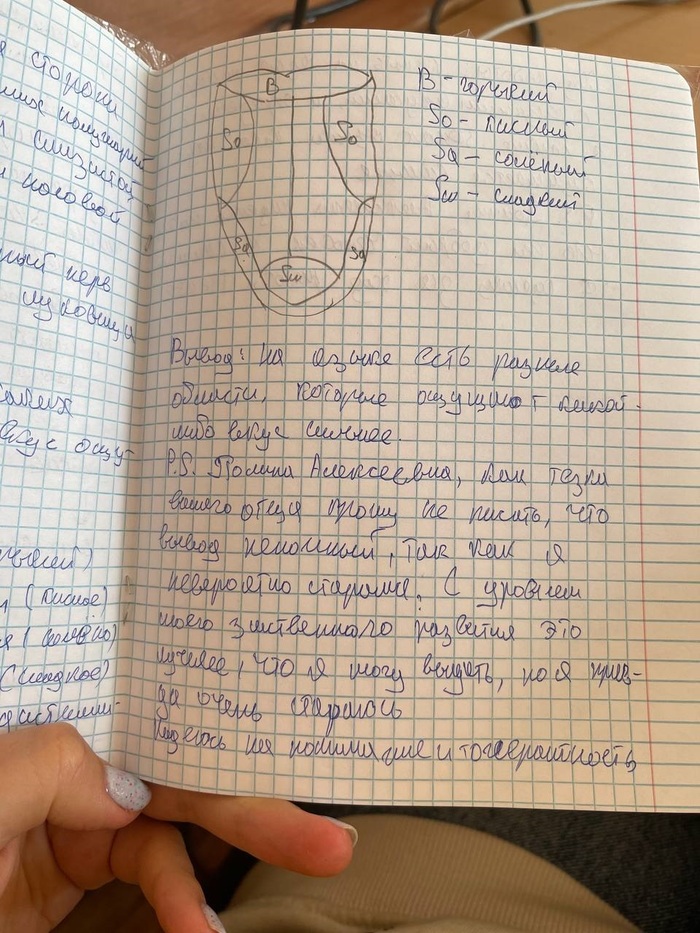 я сторона
слизистой
носовой
нерв
луковица
вкус ощу-
(кислое)
(сладкое)
B
So
So
Sa
Sa
Sw
B - горький
So - кислый
Sa - солёный
Sw - сладкий
Вывод: на языке есть разные
области, которые ощущают какой-
либо вкус сильнее.
P.S. Полина Алексеевна, как тезка
вашего отца прошу не писать, что
вывод неполный, так как я
невероятно старался. С уровнем
моего умственного развития это
лучшее, что я могу выдать, но я прав-
да очень старалось
Надеюсь на понимание и толерантность